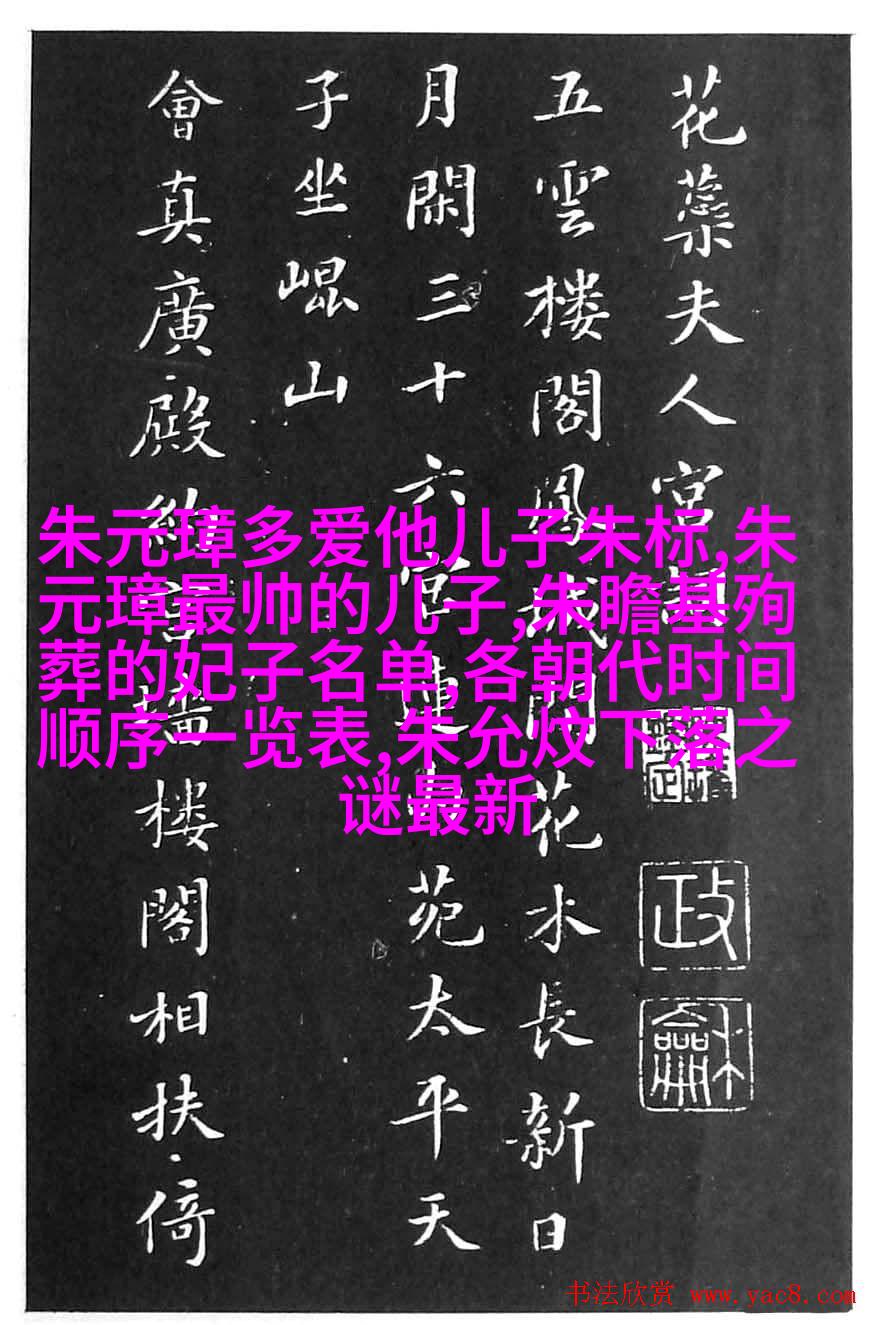 花蘂夫人宮詞
五雲樓閣鳳城間花水長新日
月閑三十六宮連内苑太平天
子坐崐山
會真廣殿約宮墻樓閣相扶倚
政龢
朱元璋多爱他儿子朱标,朱
元璋最帅的儿子,朱瞻基殉
葬的妃子名单,各朝代时间
顺序一览表,朱允炆下落之
谜最新
书法欣赏 www.yac8.com